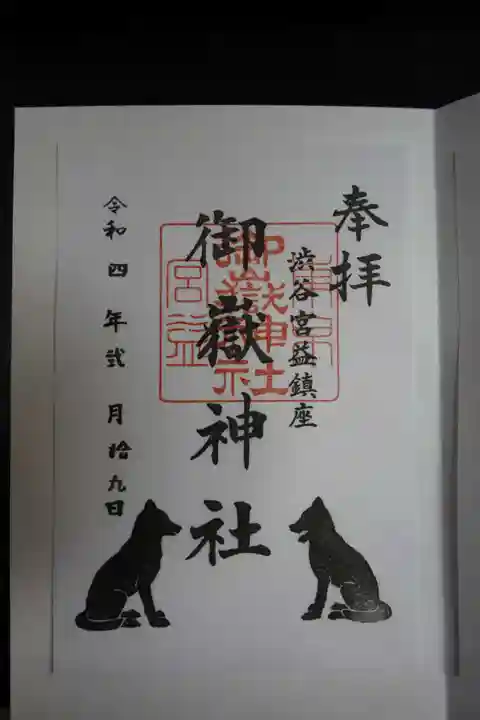 奉拝
渋谷宮益鎮座
御嶽神社
令和四年弐月拾九日
東京
御嶽神社
宮益